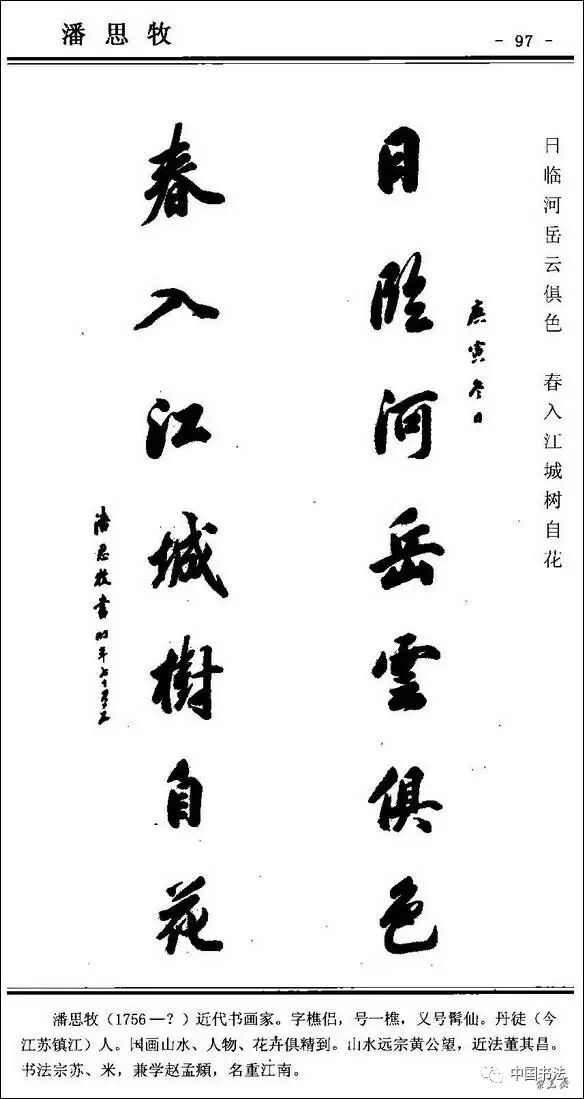 潘思牧
- 97 -
日临河岳云俱色　春入江城树自花
庚寅冬日
日臨河岳雲俱色
春入江城樹自花
潘思牧書時年七十有五
潘思牧（1756—？）近代书画家。字樵侣，号一樵，又号髯仙。丹徒（今
江苏镇江）人。国画山水、人物、花卉俱精到。山水远宗黄公望，近法董其昌。
书法宗苏、米，兼学赵孟頫，名重江南。
中国书法